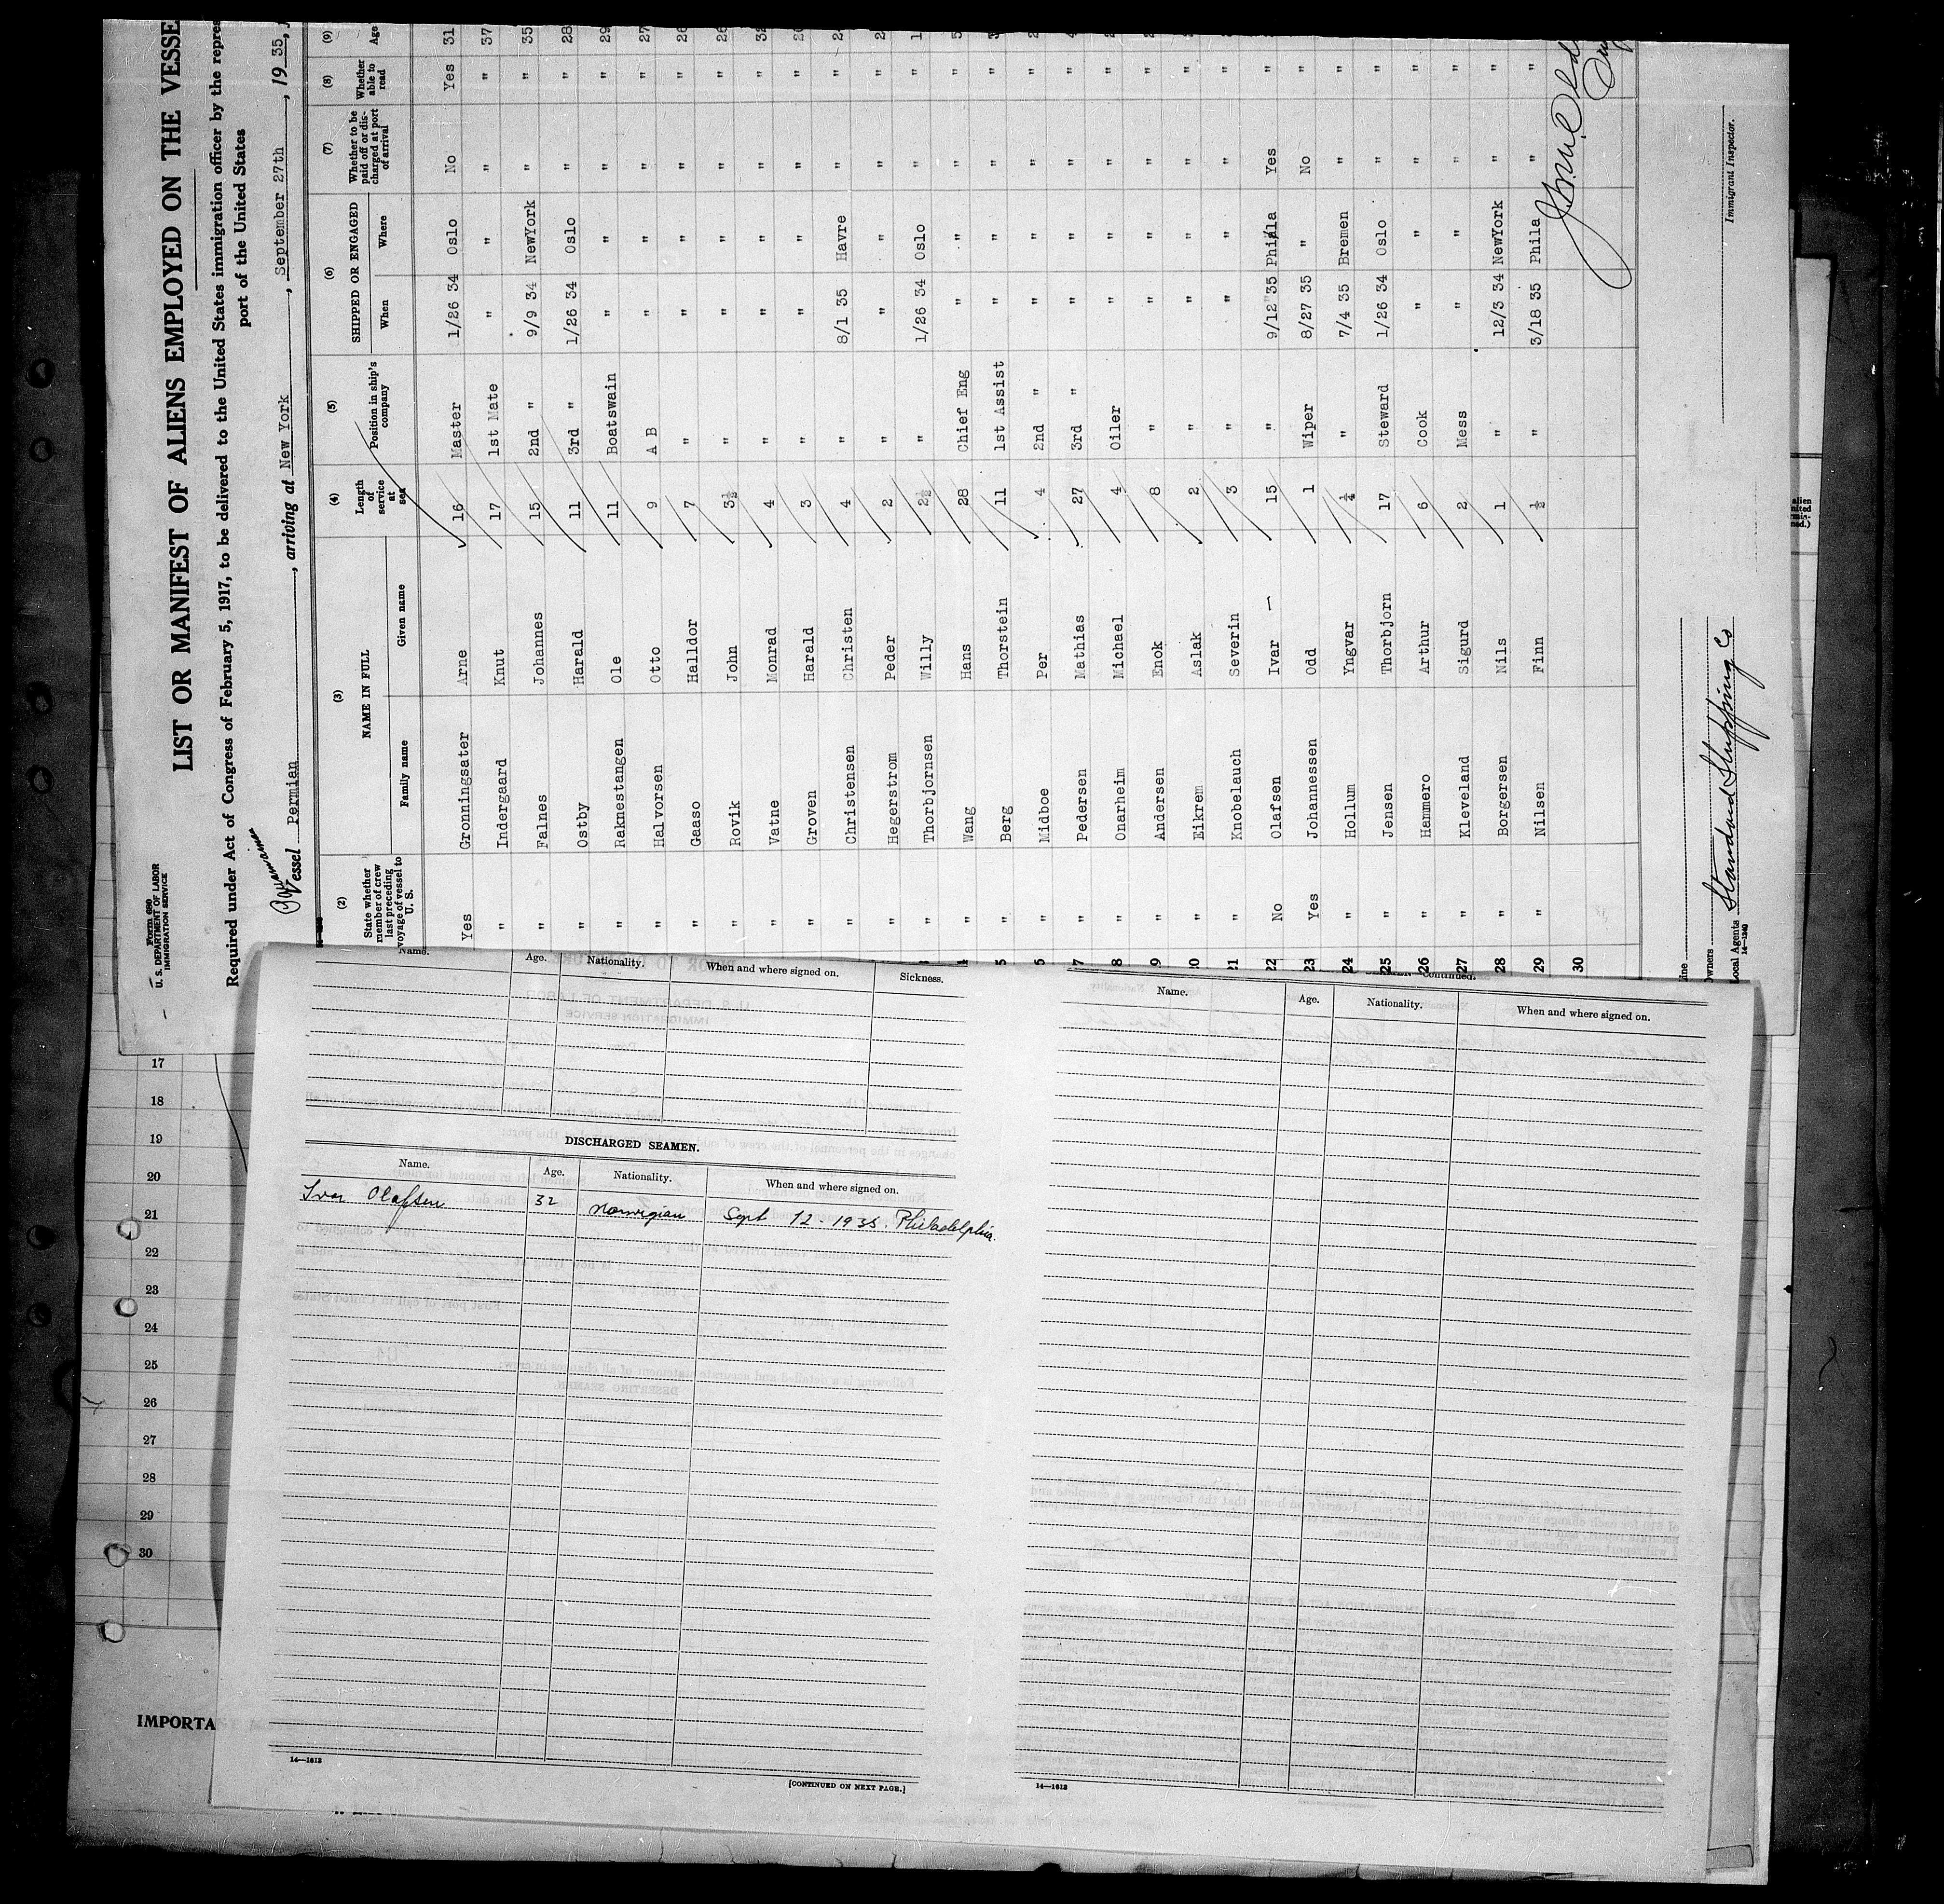 Form 680
U. S. DEPARTMENT OF LABOR
IMMIGRATION SERVICE
LIST OR MANIFEST OF ALIENS EMPLOYED ON THE VESSE
Required under Act of Congress of February 5, 1917, to be delivered to the United States immigration officer by the repres
port of the United States
Vessel Permian, arriving at New York, September 27th, 1935,
(2) (3) (4) (5) (6) (7) (8) (9)
State whether member of crew last preceding voyage of vessel to U. S. NAME IN FULL Length of service at sea Position in ship's company SHIPPED OR ENGAGED Whether to be paid off or discharged at port of arrival Whether able to read Age
Family name Given name When Where
Yes Gronningsater Arne 16 Master 1/26 34 Oslo No Yes 31
" Indergaard Knut 17 1st Mate " " " " 37
" Falnes Johannes 15 2nd " 9/9 34 NewYork " " 35
" Ostby Harald 11 3rd " 1/26 34 Oslo " " 28
" Raknestangen Ole 11 Boatswain " " " " 29
" Halvorsen Otto 9 A B " " " " 27
" Gaaso Halldor 7 " " " " " 26
" Rovik John 3½ " " " " " 26
" Vatne Monrad 4 " " " " " 32
" Groven Harald 3 " " " " "
" Christensen Christen 4 " 8/1 35 Havre " "
" Hegerstrom Peder 2 " " " " "
" Thorbjornsen Willy 2½ " 1/26 34 Oslo " "
" Wang Hans 28 Chief Eng " " " "
" Berg Thorstein 11 1st Assist " " " "
" Midboe Per 4 2nd " " " " "
" Pedersen Mathias 27 3rd " " " " "
" Onarheim Michael 4 Oiler " " " "
" Andersen Enok 8 " " " " "
" Eikrem Aslak 2 " " " " "
" Knobelauch Severin 3 " " " " "
22 No Olafsen Ivar — 15 " 9/12 35 Phila Yes "
23 Yes Johannessen Odd 1 Wiper 8/27 35 " No "
24 " Hollum Yngvar ¼ " 7/4 35 Bremen " "
25 " Jensen Thorbjorn 17 Steward 1/26 34 Oslo " "
26 " Hammero Arthur 6 Cook " " " "
27 " Kleveland Sigurd 2 Mess " " " "
28 " Borgersen Nils 1 " 12/3 34 NewYork " "
29 " Nilsen Finn ½ " 3/18 35 Phila " "
30
Immigrant Inspector.
Local Agents Standard Shipping Co
14—1240
Name. Age. Nationality. When and where signed on. Sickness.
DISCHARGED SEAMEN.
Name. Age. Nationality. When and where signed on.
Ivar Olafsen 32 Norwegian Sept 12 - 1935. Philadelphia.
14—1613
[CONTINUED ON NEXT PAGE.]
SEAMEN—Continued.
Name. Age. Nationality. When and where signed on.
14—1613
17
18
19
20
21
22
23
24
25
26
27
28
29
30
IMPORTA